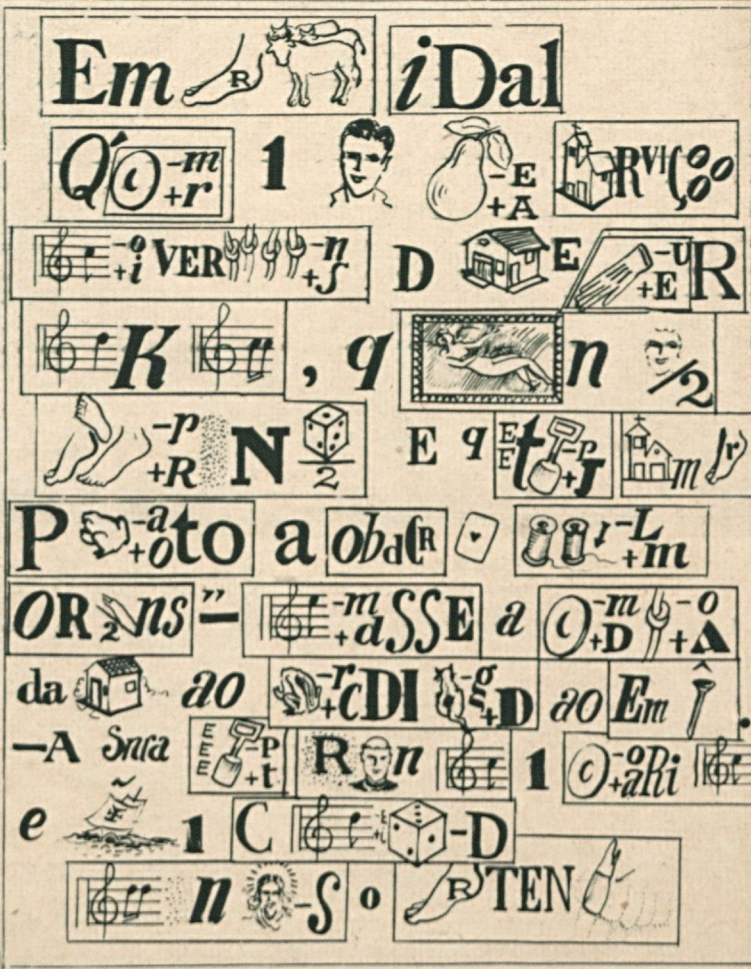 Em R iDal
Q' -m +r 1 -E +A RVIÇ
-o +i VER -n +S D E -U +E R
K , q n /2
-r +R N 2 E q E E t -p +J m r
P -a +o to a obdCR -L +m
OR 2 ns" – -m +d SSE a -m +D -o +A
da ao -r +cDI -g +D ao Em .
–A Snra E E E -P +t R n 1 -o +aRi
e 1 C -D
n -S o R TEN